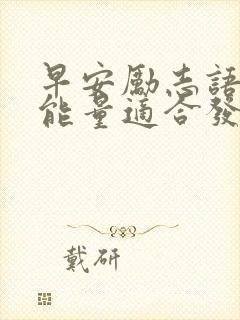 早安勵志語
能量適合發
戴研